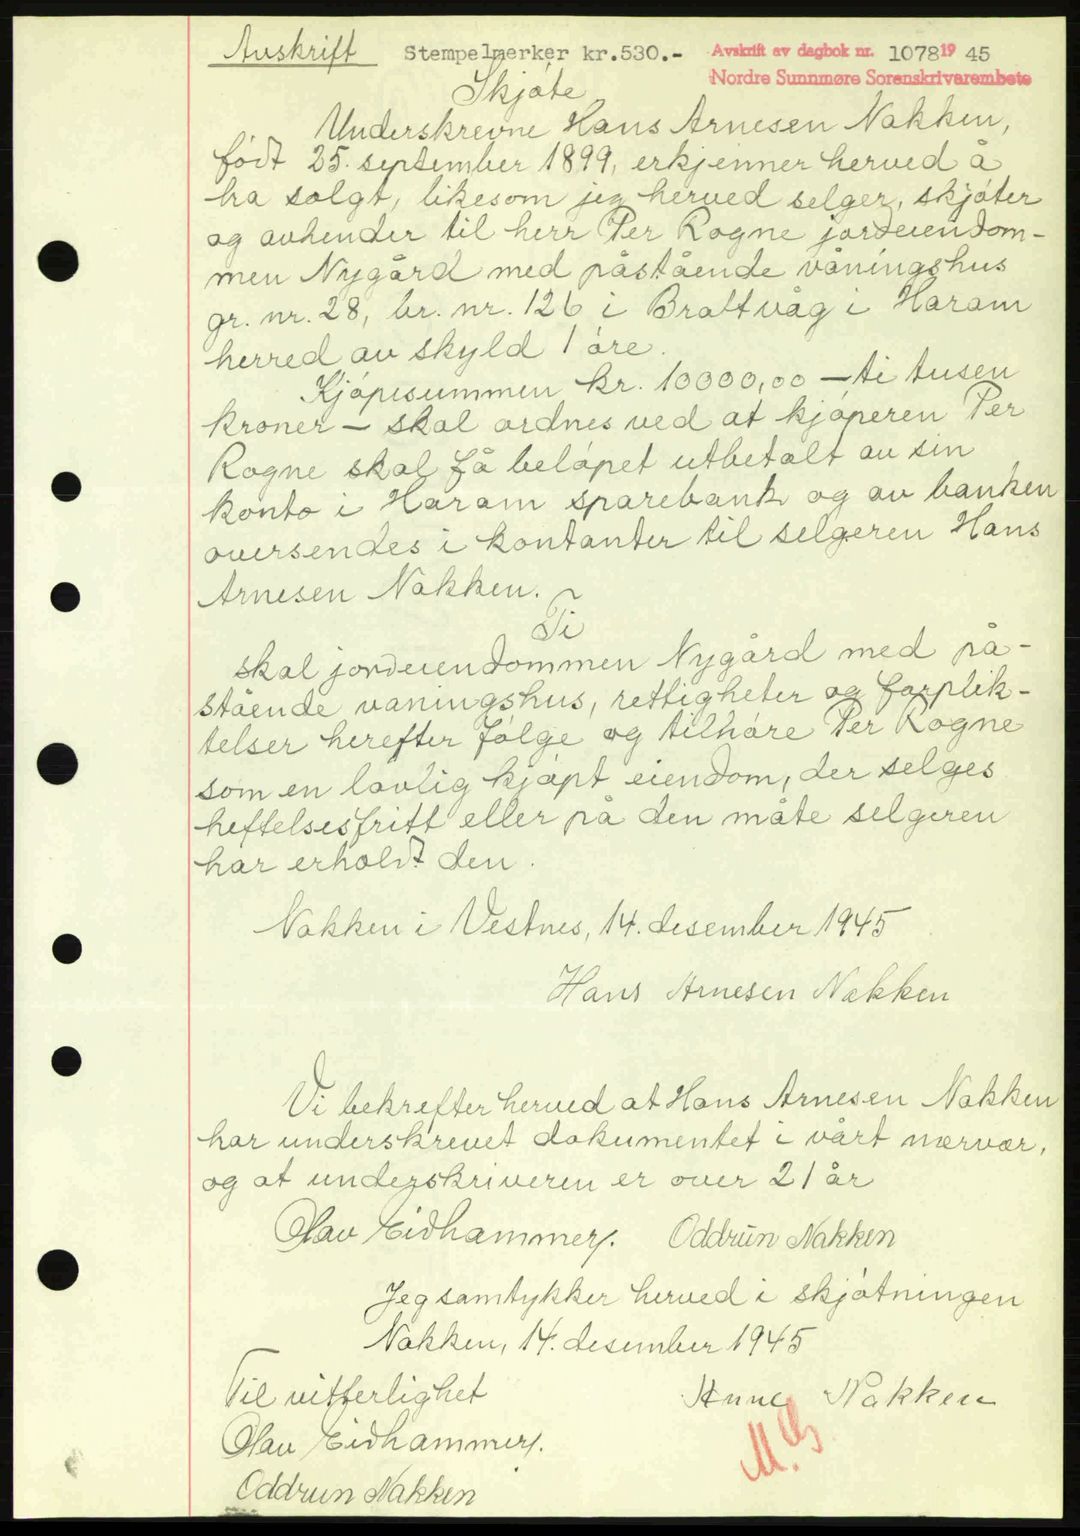 Avskrift Stempelmerker kr.530.- Avskrift av dagbok nr. 1078 19 45
Nordre Sunnmøre Sorenskriverembete
Skjøte
Underskrevne Hans Arnesen Nakken,
født 25. september 1899, erkjenner herved å
ha solgt, likesom jeg herved selger, skjøter
og avhender til herr Per Rogne jordeiendom-
men Nygård med påstående våningshus
gr. nr. 28, br. nr. 126 i Brattvåg i Haram
herred av skyld 1 øre.
Kjøpesummen kr. 10000,00 — ti tusen
kroner — skal ordnes ved at kjøperen Per
Rogne skal få beløpet utbetalt av sin
konto i Haram sparebank og av banken
oversendes i kontanter til selgeren Hans
Arnesen Nakken.
Ti
skal jordeiendommen Nygård med på-
stående vaningshus, rettigheter og forplik-
telser herefter følge og tilhøre Per Rogne
som en lovlig kjøpt eiendom, der selges
heftelsesfritt eller på den måte selgeren
har erholdt den.
Nakken i Vestnes, 14. desember 1945
Hans Arnesen Nakken
Vi bekrefter herved at Hans Arnesen Nakken
har underskrevet dokumentet i vårt nærvær,
og at underskriveren er over 21 år
Olav Eidhammer. Oddrun Nakken
Jeg samtykker herved i skjøtningen
Nakken, 14. desember 1945
Til vitterlighet Anne Nakken
Olav Eidhammer.
Oddrun Nakken